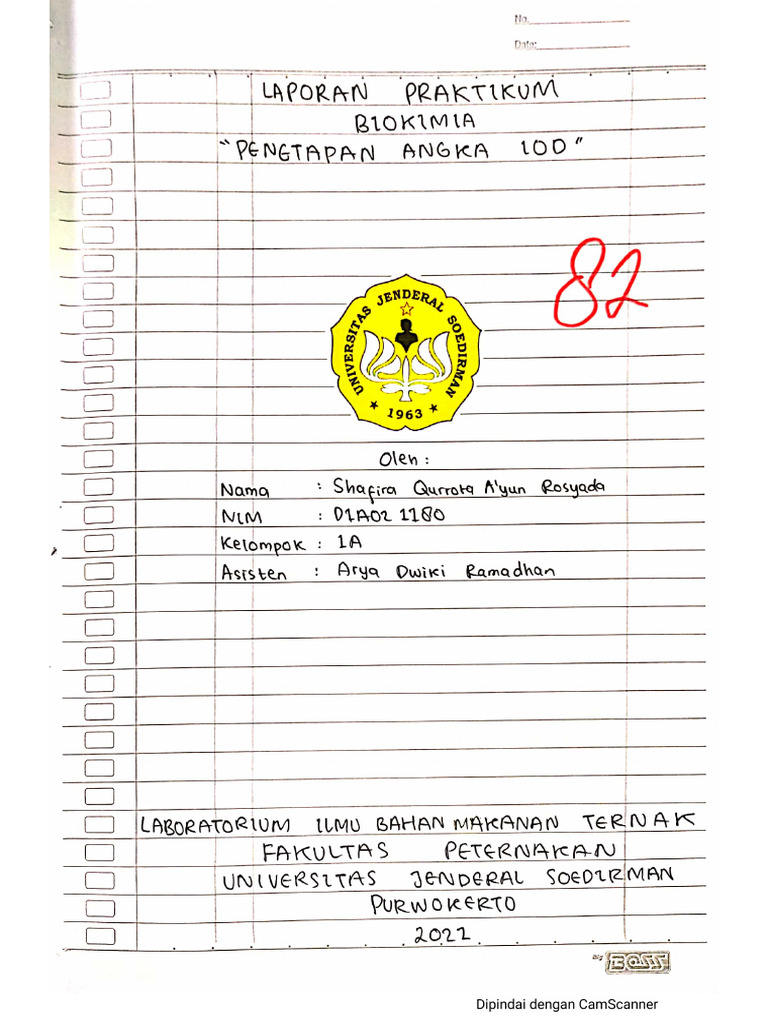 No.
Date:
LAPORAN PRAKTIKUM
BIOKIMIA
"PENETAPAN ANGKA IOD"
82
UNIVERSITAS JENDERAL SOEDIRMAN
1963
Oleh :
Nama : Shafira Qurrota A'yun Rosyada
NIM : D1A021180
Kelompok : 1A
Asisten : Arya Dwiki Ramadhan
LABORATORIUM ILMU BAHAN MAKANAN TERNAK
FAKULTAS PETERNAKAN
UNIVERSITAS JENDERAL SOEDIRMAN
PURWOKERTO
2022
Big BOSS
Dipindai dengan CamScanner